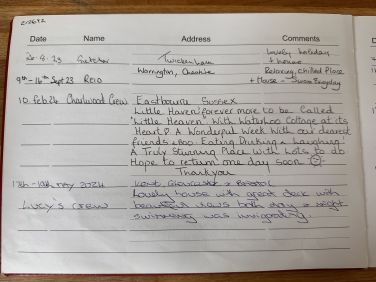 Date Name Address Comments
Twickenham Lovely holiday
+ house
9th - 16th Sept 23 REID Warrington, Cheshire Relaxing, chilled Place
+ House -
10 Feb 24 Charlwood Crew Eastbourne Sussex
Little Haven forevermore to be Called
'Little Heaven' With Waterloo Cottage at its
Heart & A Wonderful Week With our dearest
friends + Boo. Eating Drinking + Laughing.
A Truly Stunning Place With Lots to do
Hope to return one day soon
Thankyou
May 2024 Kent, Gloucester + Bristol
Lovely house with great deck with
Lucy's Crew beautiful views both day + night
swimming was invigorating.